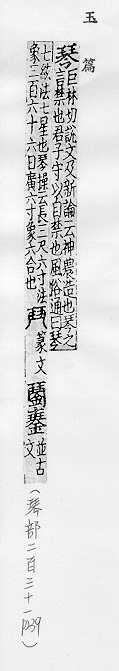 玉篇
琴巨林切說文及新論云神農造也琴之
言禁也君子守以自禁也風俗通曰琴
七絃法七星也琴操云長三尺六寸法
象三百六十六日廣六寸象六合也
篆文
並古文
(琴部二百三十一 1039)